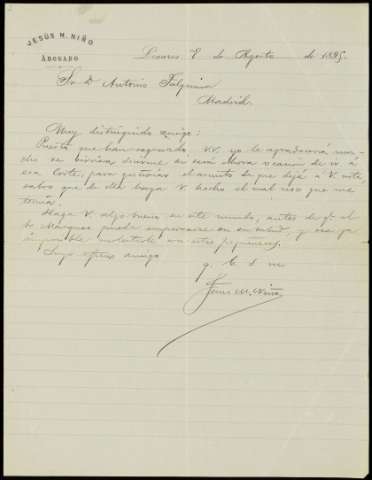 JESÚS M. NIÑO
ABOGADO
Linares 8 de Agosto de 1895.
Sr. D. Antonio
Madrid.
Muy distinguido amigo:
Puesto que han regresado VV. yo le agradecerá mu-
cho se sirviera decirme si será ahora ocasion de ir á
esa Corte, para gestionar el asunto de que dejé á V. nota
sabe que de ello haga V. hecho el uso que me
Haga V. algo bueno en este mundo, antes de q. el
Marques pueda en su salud, y sea ya
imposible molestarle con estas
Suyo afmo amigo
q. b. s. m.
Jesus M. Niño